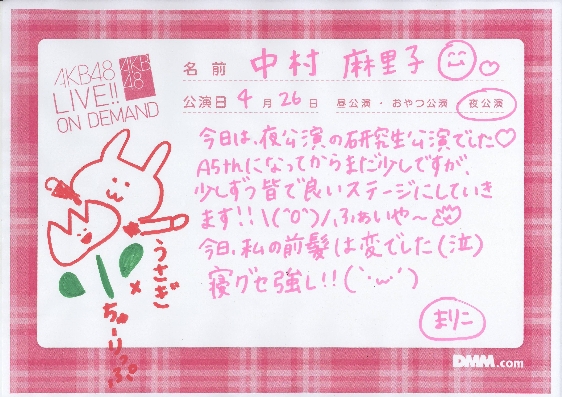 AKB48
LIVE!!
ON DEMAND
AKB
48
名前 中村 麻里子
公演日 4月26日 昼公演・おやつ公演・夜公演
今日は、夜公演の研究生公演でした♡
A5thになってからまだ少しですが、
少しずつ皆で良いステージにしていき
ます!! \(^o^)/ふぁいや〜
今日、私の前髪は変でした(泣)
寝グセ強し!!(`・ω・´)
まりこ
うさぎ
×
ちゅーりっぷ。
DMM.com